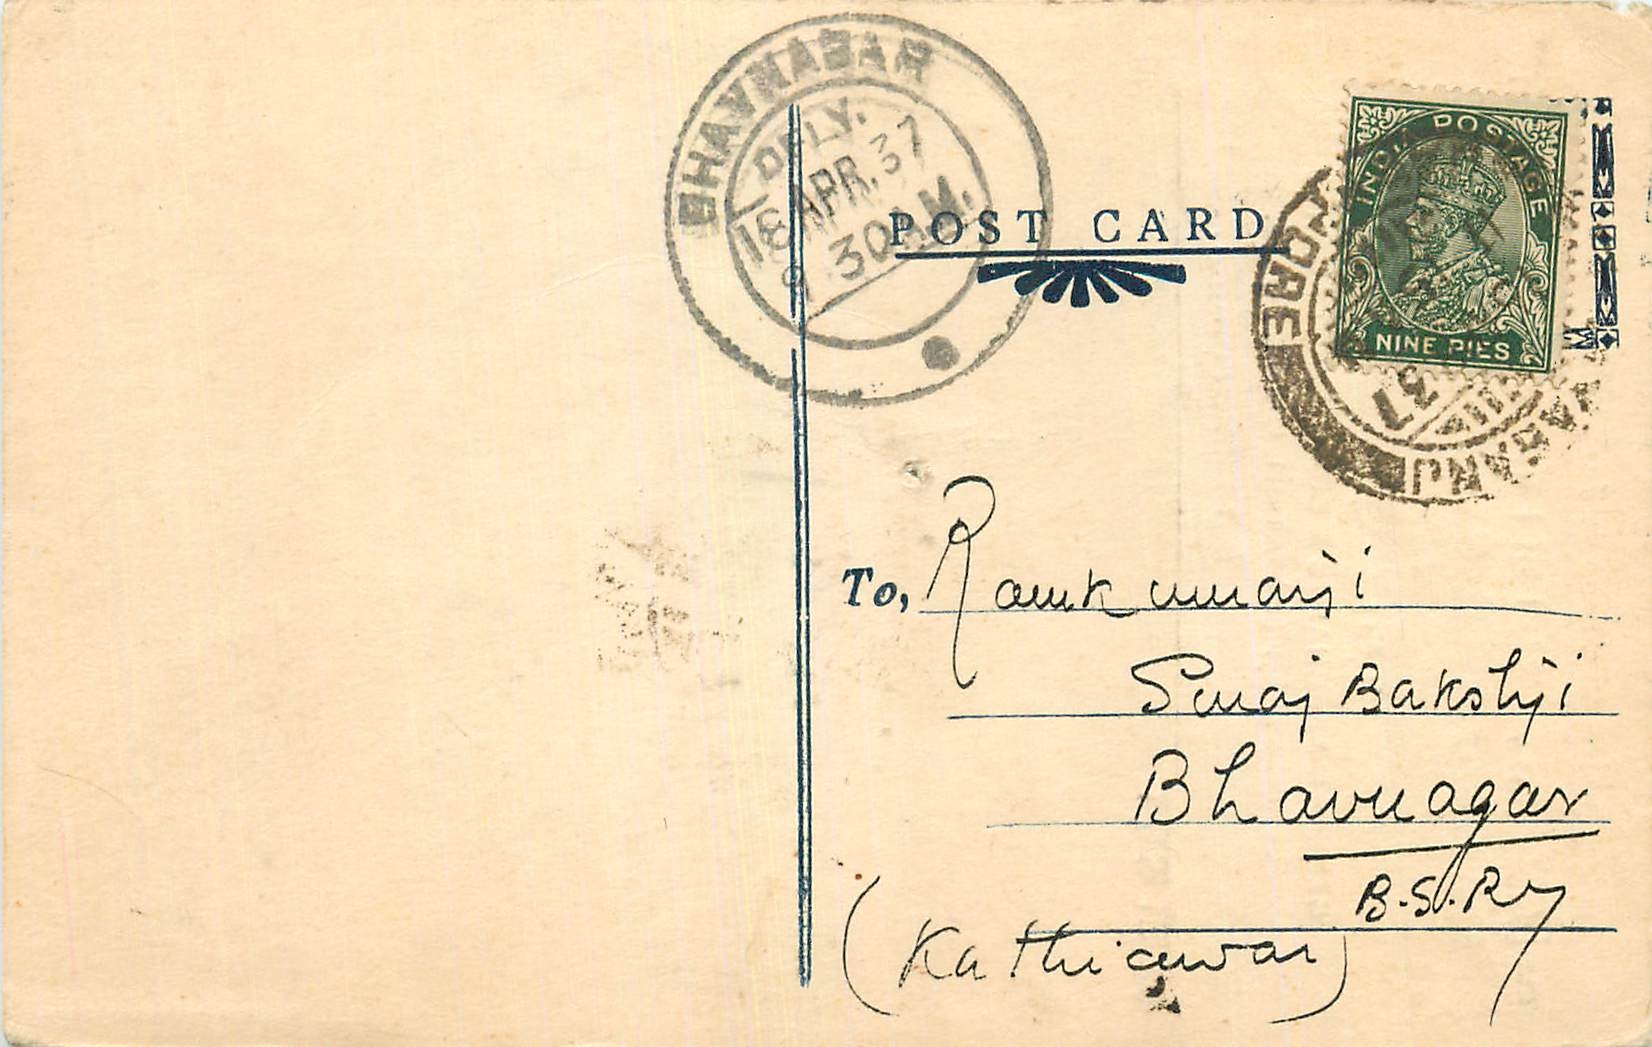 BHAVNAGAR
DELY.
18 APR. 37
8.30 A.M.
POST CARD
INDIA POSTAGE
NINE PIES
37
To, Ramkumarji
Suraj Bakshji
Bhavnagar
B.S.Ry
(Kathiawar)